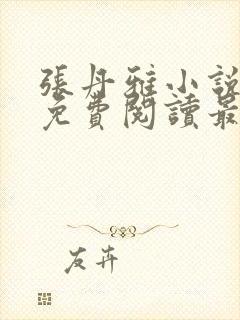 張丹雅小說
免費閱讀最
友卉